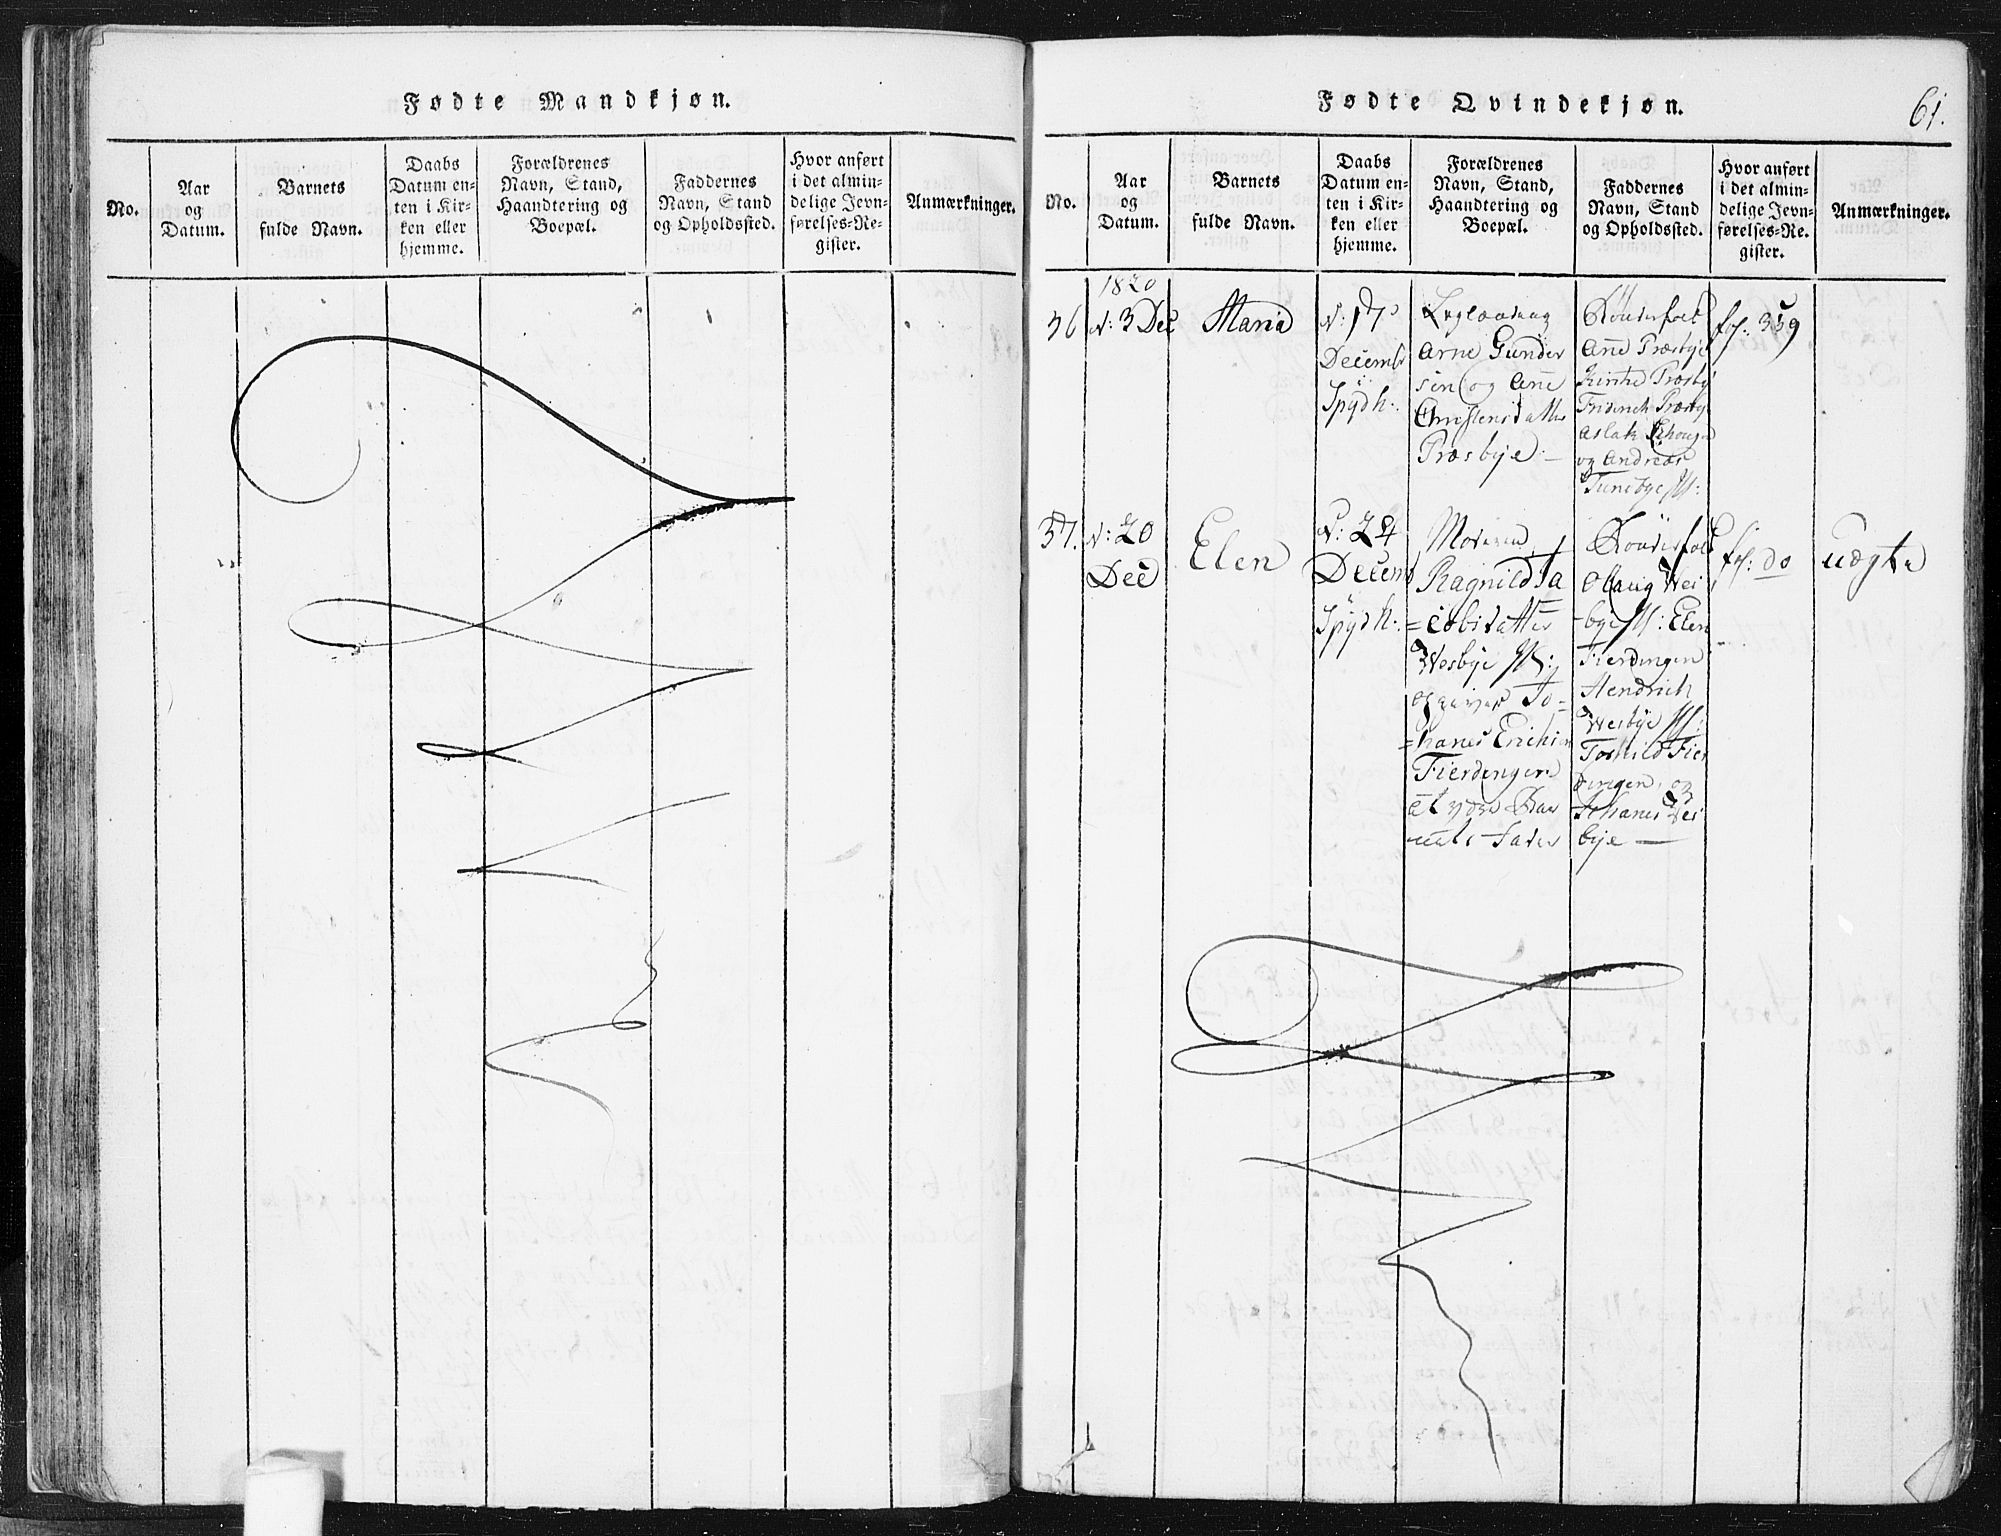 Fødte Mandkjøn.
No.
Aar
og
Datum.
Barnets
fulde Navn.
Daabs
Datum en-
ten i Kir-
ken eller
hjemme.
Forældrenes
Navn, Stand,
Haandtering og
Boepæl.
Faddernes
Navn, Stand
og Opholdssted.
Hvor anført
i det almin-
delige Jevn-
førelses-Re-
gister.
Anmærkninger.
Fødte Qvindekjøn.
61.
No.
Aar
og
Datum.
Barnets
fulde Navn.
Daabs
Datum en-
ten i Kir-
ken eller
hjemme.
Forældrenes
Navn, Stand,
Haandtering og
Boepæl.
Faddernes
Navn, Stand
og Opholdssted.
Hvor anført
i det almin-
delige Jevn-
førelses-Re-
gister.
Anmærkninger.
36
1820
N: 3 Dec
Maria
N: 17
Decembr
Spydb:
Arne Gunder
sen og Ane
Christensdatter
Præsbye
Ane Præsbye
Kirstie Præsby
Friderich Præsby
Aslak
og Andreas
Tunebye
fol: 359
37.
N: 20
Dec
Elen
N: 24
Decemb
Spydb:
Moderen
Ragnild Ja
=cobsdatter
Wesbye
opgiver Jo=
=hanes Erichsen
Fierdingen
at være Bar
nets Fader
Olaug Wes
=bye : Elen
Fierdingen
Hendrich
Wesbye
Torkild Fier
dingen, og
Johanes Wes
bye
fol: do
uægte